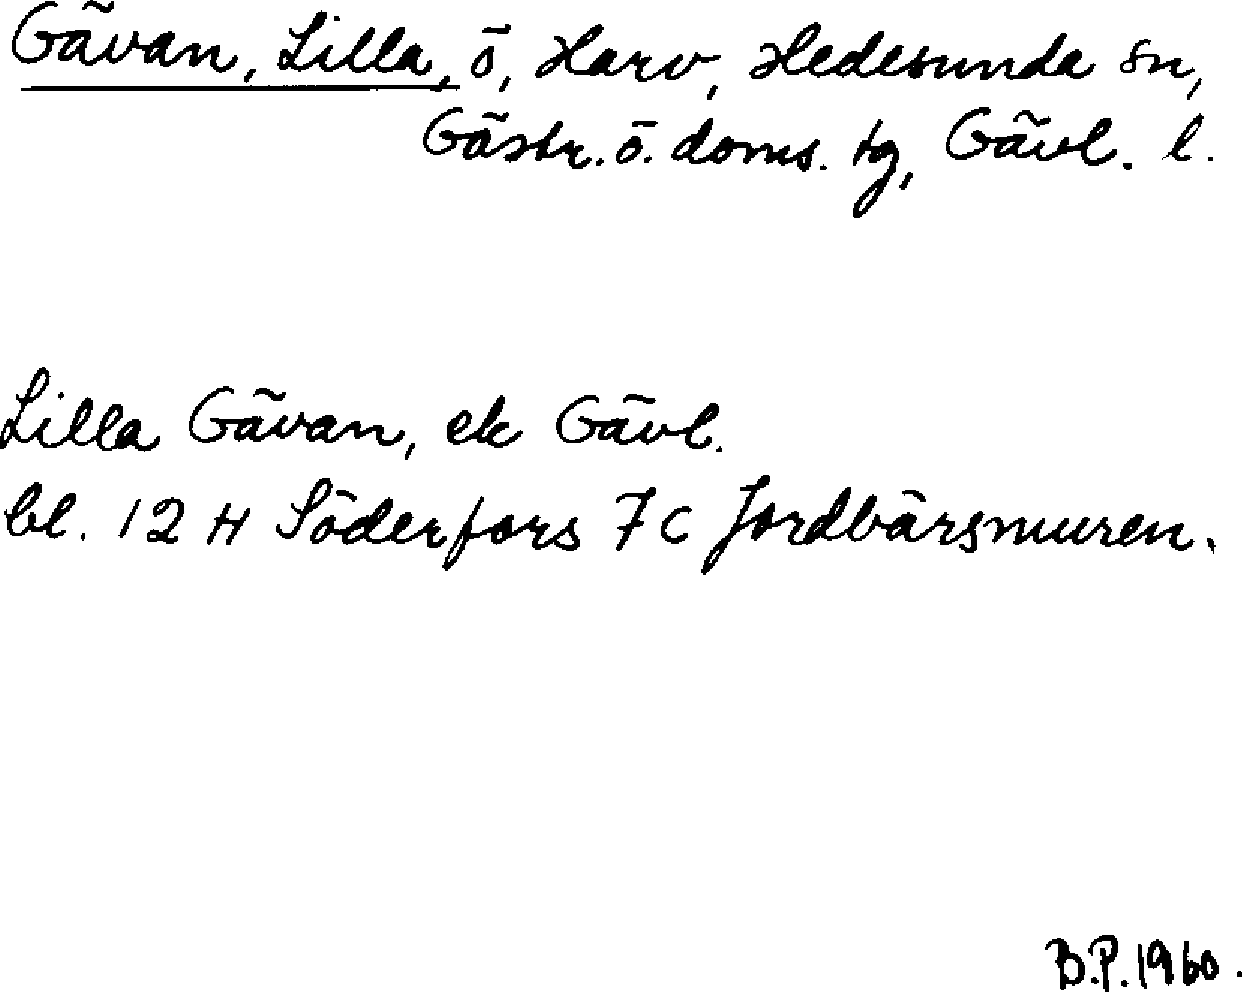 Gävan, Lilla, ö, Harv, Hedesunda sn,
Gästr. ö. doms. tg, Gävl. l.
Lilla Gävan, ek Gävl.
bl. 12 H Söderfors 7 C Jordbärsmuren.
B.P. 1960.